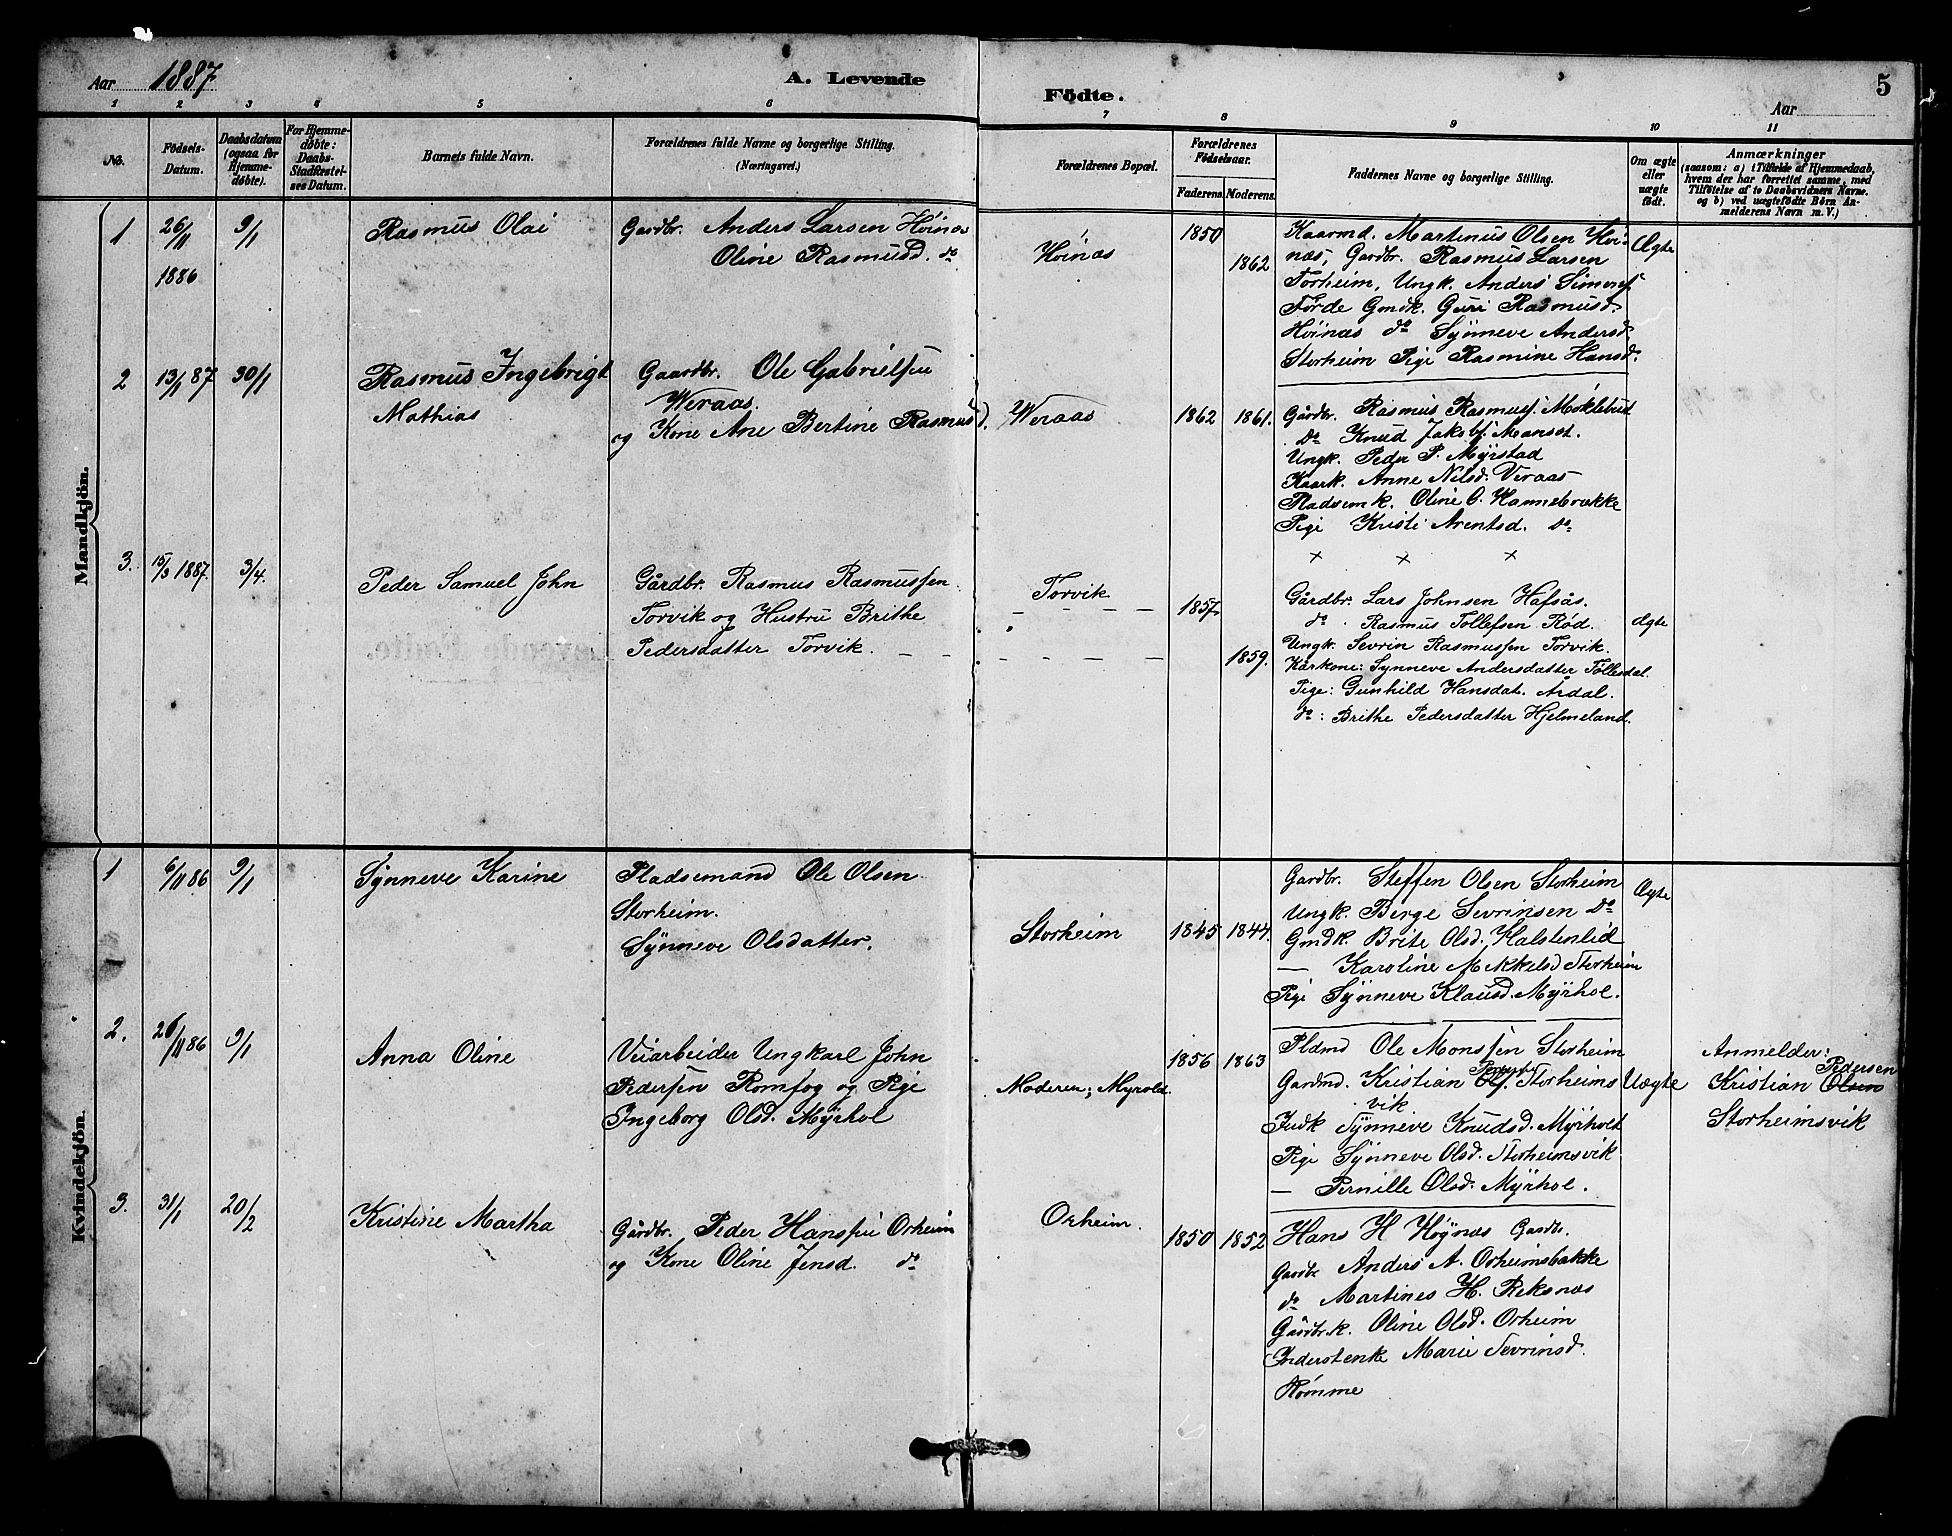 Aar 1887
A. Levende
Födte.
Aar
5
1 2 3 4 5 6 7 8 9 10 11
No.
Födsels-
Datum.
Daabsdatum
(ogsaa for
Hjemme-
döbte).
For Hjemme-
döbte:
Daabs-
Stadfæstel-
ses Datum.
Barnets fulde Navn.
Forældrenes fulde Navne og borgerlige Stilling.
(Næringsvei.)
Forældrenes Bopæl.
Forældrenes
Födselsaar.
Faderens. Moderens.
Faddernes Navne og borgerlige Stilling.
Om ægte
eller
uægte
födt.
Anmærkninger
(saasom: a) i Tilfælde af Hjemmedaab,
hvem der har forrettet samme, med
Tilföielse af to Daabsvidners Navne.
og b) ved uægtefödte Börn An-
melderens Navn m. V.)
Mandkjön.
1
26/11
1886
9/1
Rasmus Olai
Gardbr. Anders Larsen Höinæs
Oline Rasmusd. do
Höinæs
1850
1862
Kaarmd. Martinus Olsen Höi-
næs, Gardbr. Rasmus Larsen
Torheim, Ungk. Anders Simens.
Förde Gmdk. Guri Rasmusd.
Höinæs do Synneve Andersd
Storheim Pige Rasmine Hansd.
Ægte
2
13/1 87
30/1
Rasmus Ingebrigt
Mathias
Gaardbr. Ole Gabrielsen
Weraas.
og Kone Ane Bertine Rasmusd.
Weraas
1862
1861.
Gårdbr. Rasmus Rasmuss. Möklebud
Do Knud Jakobs. Manset.
Ungk. Peder P. Myrstad
Kaark. Anne Nilsd. Veraas
Pladsemk. Oline O. Hannebrække
Pige Kristi Arentsd. do
× × ×
3.
15/3 1887.
3/4.
Peder Samuel John
Gårdbr. Rasmus Rasmussen
Torvik og Hustru Brithe
Pedersdatter Torvik.
Torvik
1857.
1859.
Gårdbr. Lars Johnsen Hafsås.
do. Rasmus Tollefsen Rød.
Ungk. Sevrin Rasmussen Torvik.
Kårkone: Synneve Andersdatter Tollesdal.
Pige: Gunhild Hansdat. Årdal.
do: Brithe Pedersdatter Hjelmeland.
Ægte
Kvindekjön.
1
6/11 86
9/1
Synneve Karine
Pladsemand Ole Olsen
Storheim.
Synneve Olsdatter.
Storheim
1845
1844.
Gardbr. Steffen Olsen Storheim
Ungk. Berge Sevrinsen Do
Gmdk. Brite Olsd. Halstenlid
— Karoline Mikkelsd Storheim
Pige Synneve Klausd. Myrhol.
Ægte
2.
26/11 86
9/1
Anna Oline
Veiarbeider Ungkarl John
Pedersen Romfog og Pige
Ingeborg Olsd. Myrhol
Moderen; Myrold.
1856
1863
Pldmd Ole Monssen Storheim
Gardmd. Kristian Ols. Storheims
vik
Indk Synneve Knudsd. Myrholt
Pige Synneve Olsd. Storheimsvik
— Pernille Olsd. Myrhol.
Uægte
Anmelder:
Pedersen
Kristian Olsen
Storheimsvik
3.
31/1
20/2
Kristine Martha
Gårdbr. Peder Hanssen Orheim
og Kone Oline Jensd. do
Orheim.
1850
1852
Hans H Høynæs Gardb.
Gardb. Anders A. Orheimsbakke
do Martines H. Reksnæs
Gårdbr.k. Oline Olsd. Orheim
Inderstenke Marie Sevrinsd.
Rømme